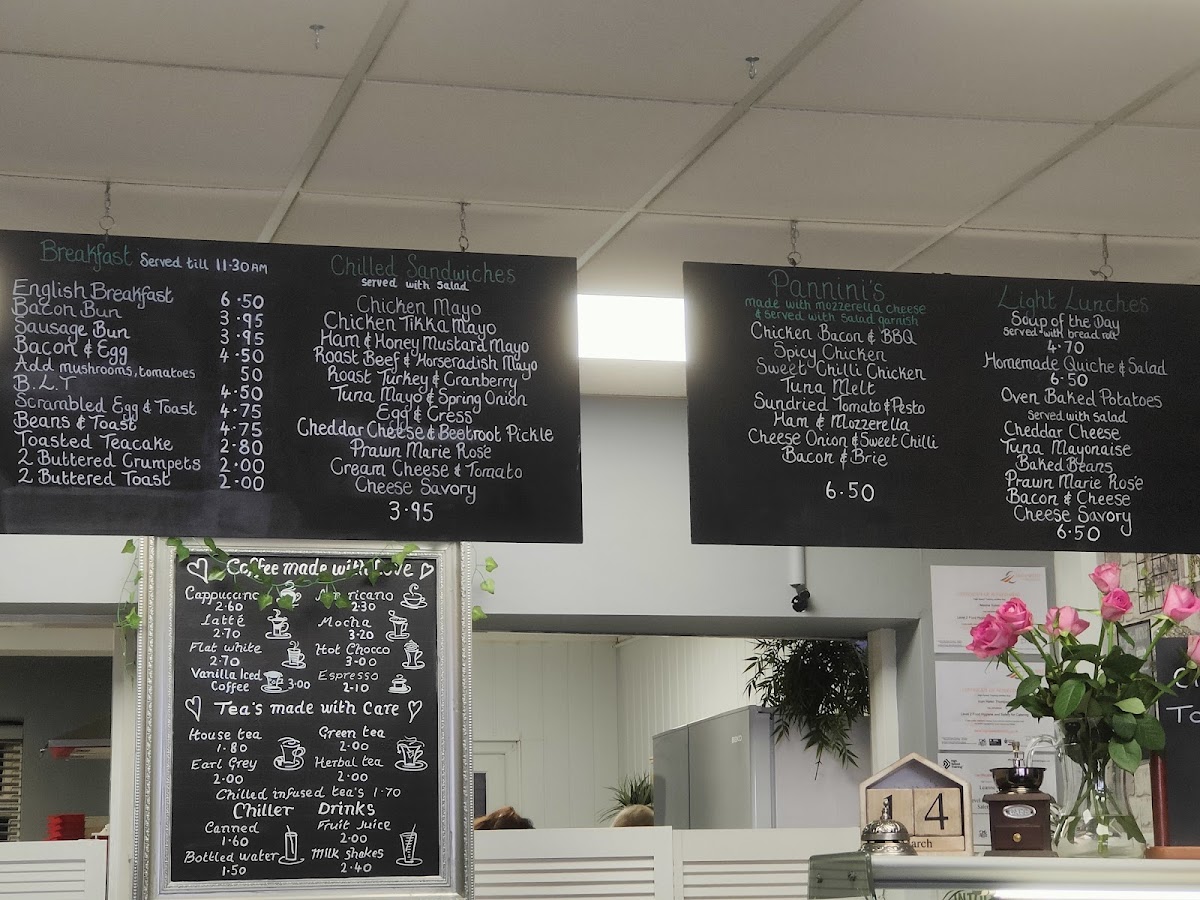 Breakfast Served till 11·30AM
English Breakfast 6·50
Bacon Bun 3·95
Sausage Bun 3·95
Bacon & Egg 4·50
Add mushrooms, tomatoes 50
B.L.T 4·50
Scrambled Egg & Toast 4·75
Beans & Toast 4·75
Toasted Teacake 2·80
2 Buttered Crumpets 2·00
2 Buttered Toast 2·00
Chilled Sandwiches
served with salad
Chicken Mayo
Chicken Tikka Mayo
Ham & Honey Mustard Mayo
Roast Beef & Horseradish Mayo
Roast Turkey & Cranberry
Tuna Mayo & Spring Onion
Egg & Cress
Cheddar Cheese & Beetroot Pickle
Prawn Marie Rose
Cream Cheese & Tomato
Cheese Savory
3·95
Pannini's
made with mozzerella cheese
& served with salad garnish
Chicken Bacon & BBQ
Spicy Chicken
Sweet Chilli Chicken
Tuna Melt
Sundried Tomato & Pesto
Ham & Mozzerella
Cheese Onion & Sweet Chilli
Bacon & Brie
6·50
Light Lunches
Soup of the Day
served with bread roll
4·70
Homemade Quiche & Salad
6·50
Oven Baked Potatoes
served with salad
Cheddar Cheese
Tuna Mayonaise
Baked Beans
Prawn Marie Rose
Bacon & Cheese
Cheese Savory
6·50
Coffee made with love
Cappuccino 2·60
Americano 2·30
Latté 2·70
Mocha 3·20
Flat white 2·70
Hot Chocco 3·00
Vanilla Iced Coffee 3·00
Espresso 2·10
Tea's made with Care
House tea 1·80
Green tea 2·00
Earl Grey 2·00
Herbal tea 2·00
Chilled infused tea's 1·70
Chiller Drinks
Canned 1·60
Fruit Juice 2·00
Bottled water 1·50
Milk shakes 2·40
14
arch